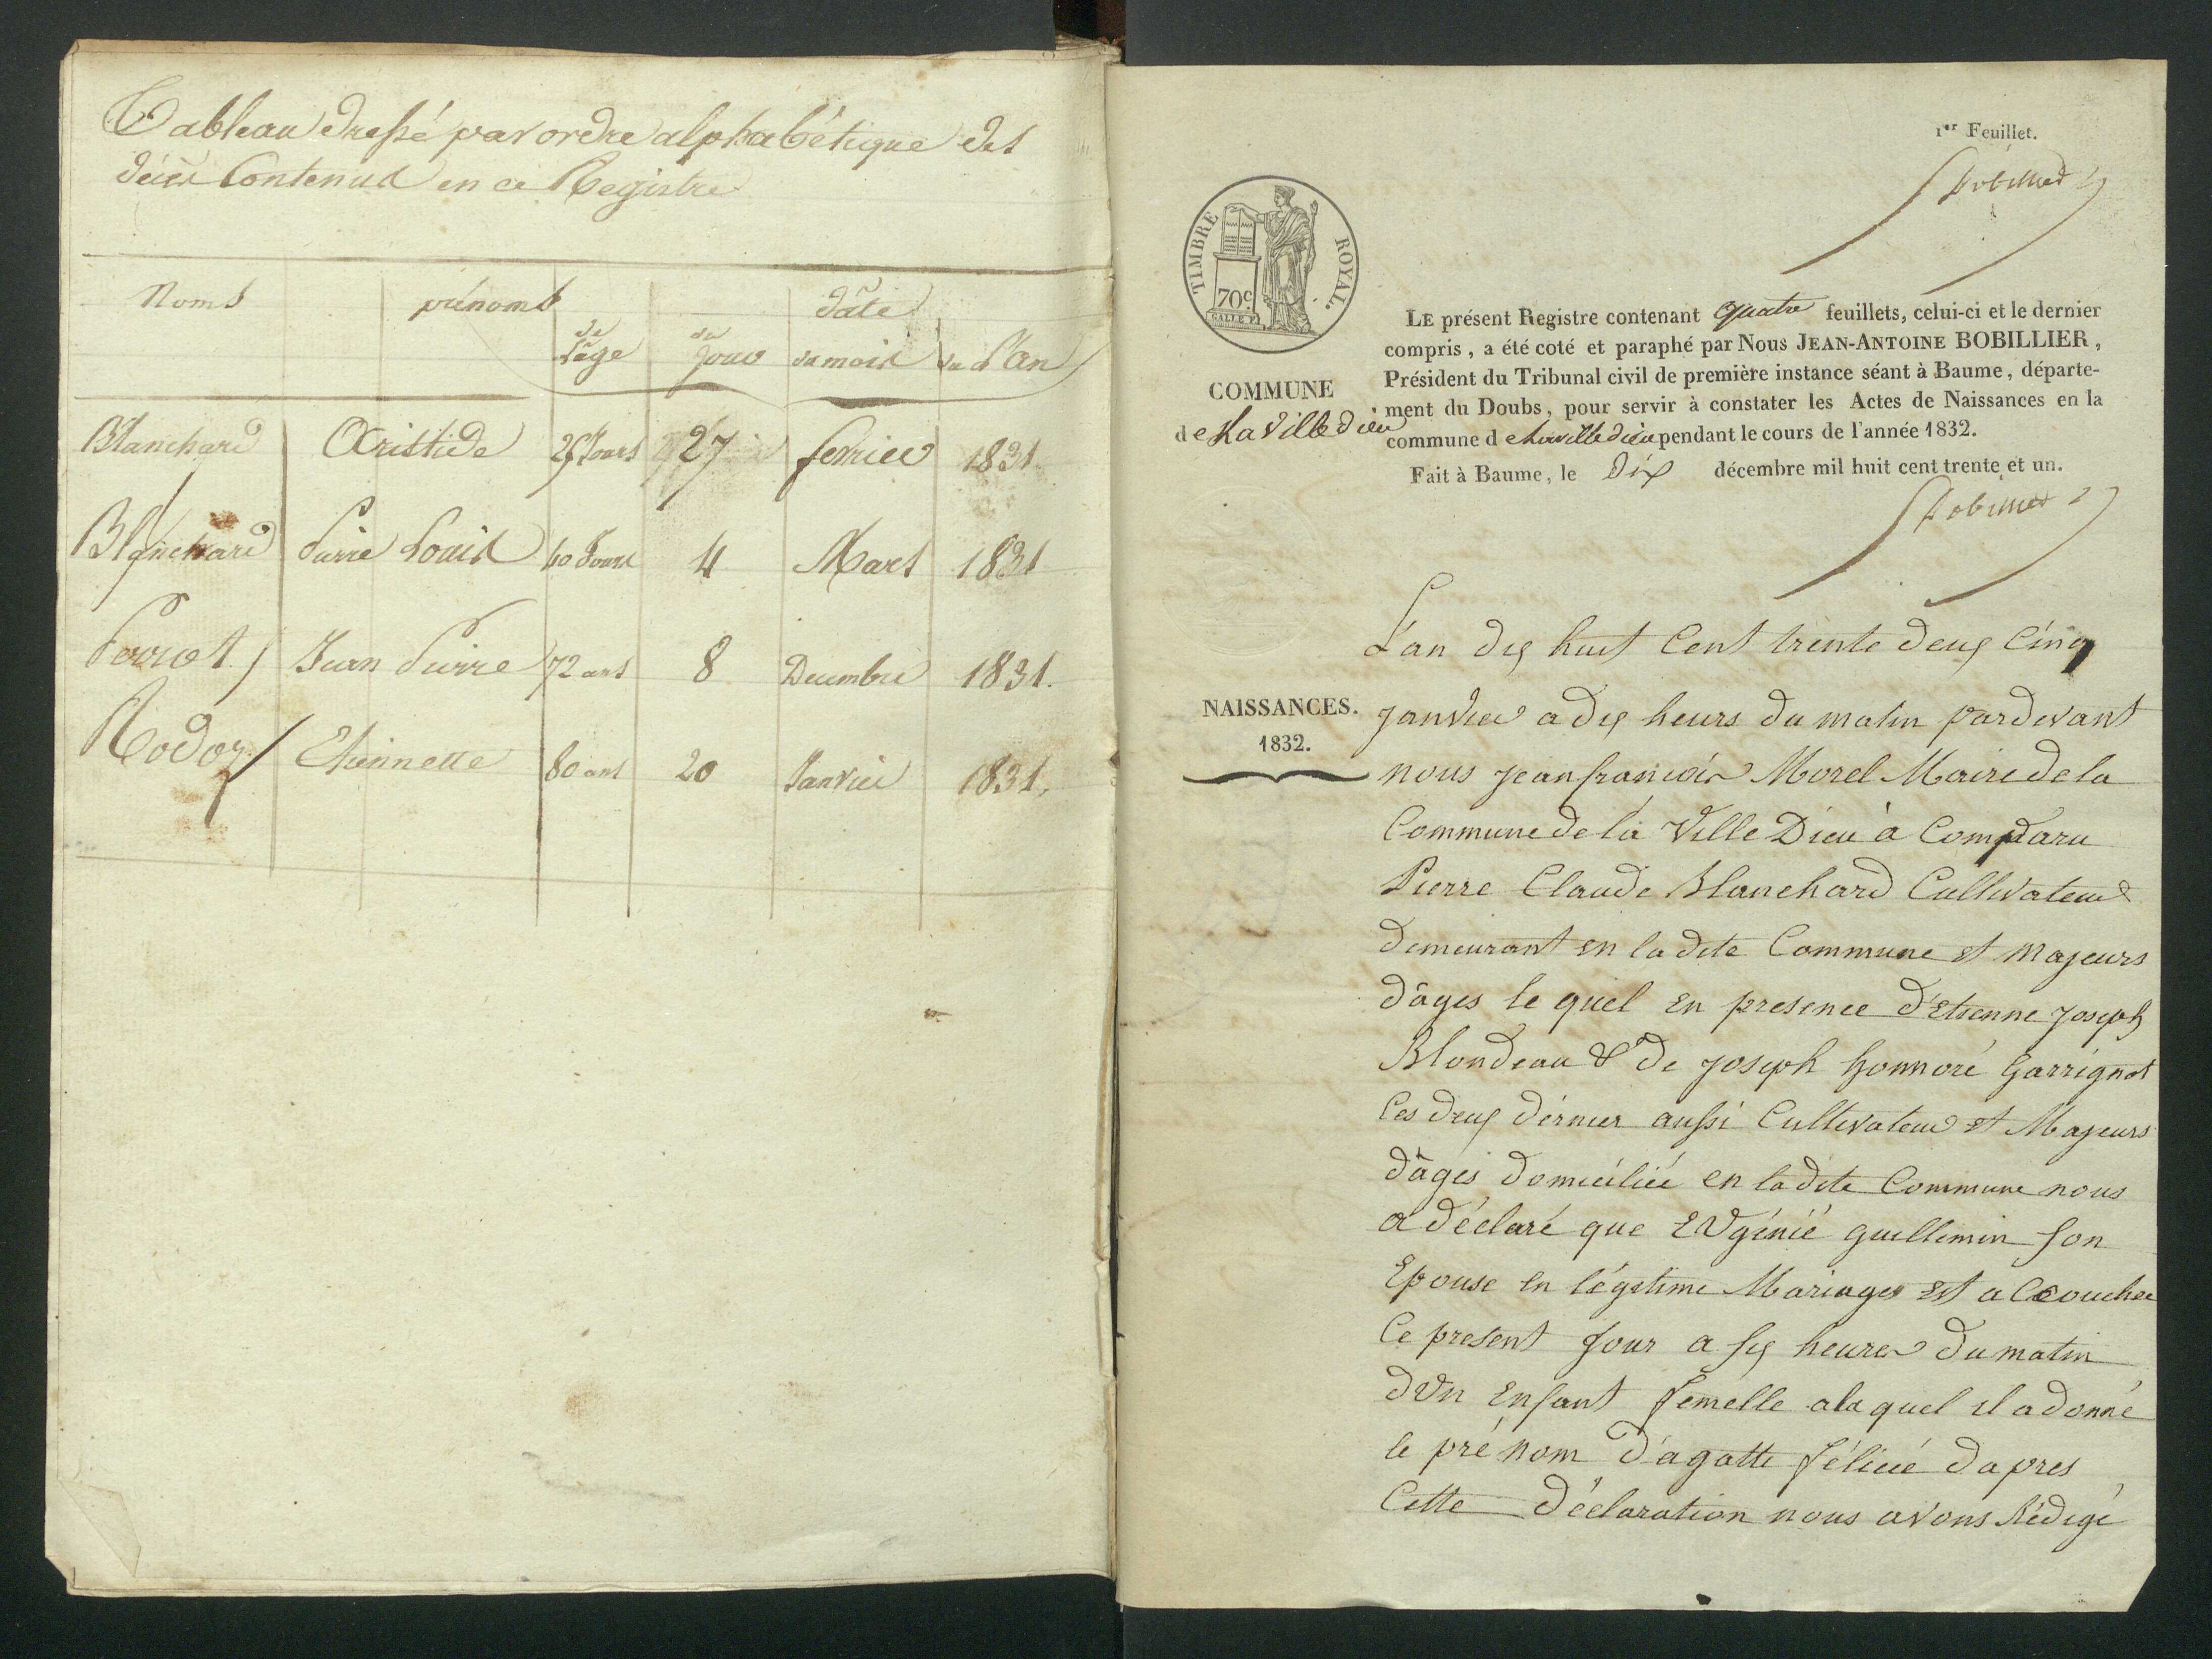 Tableau dressé par ordre alphabétique des
décès Contenus en ce Registre
Noms prénoms dâte
de l'âge du Jour du mois de l'An
Blanchard Aristide 25 Jours 27 fevrier 1831
Blanchard Pierre Louis 40 Jours 4 Mars 1831
Perrot Jean Pierre 72 ans 8 Decembre 1831.
Rodoz Etiennette 80 ans 20 Janvier 1831.
1er Feuillet.
Bobillier
TIMBRE ROYAL.
70c
COMMUNE
de La Ville dieu
NAISSANCES.
1832.
LE présent Registre contenant quatre feuillets, celui-ci et le dernier
compris, a été coté et paraphé par Nous JEAN-ANTOINE BOBILLIER,
Président du Tribunal civil de première instance séant à Baume, départe-
ment du Doubs, pour servir à constater les Actes de Naissances en la
commune d e Laville dieu pendant le cours de l'année 1832.
Fait à Baume, le dix décembre mil huit cent trente et un.
Bobillier
L'an dix huit Cent trente deux Cinq
Janvier a dix heurs du matin pardevant
nous jean françois Morel Maire de la
Commune de la Ville Dieu à Comparu
Pierre Claude Blanchard Cultivateur
demeurant en la dite Commune et majeurs
dâges le quel en presence d'Etienne joseph
Blondeau & de joseph honnoré Garrignot
Ces deux dérnier aussi Cultivateur et Majeurs
dâges domiciliée en ladite Commune nous
a déclaré que EVgénié guillemin son
Epouse en légetime Mariages est a Ccouchee
Ce present jour a six heures du matin
dVn Enfant femelle ala quel il adonné
le pré nom d'agatte féliciê dapres
Cette déclaration nous avons Rédigé